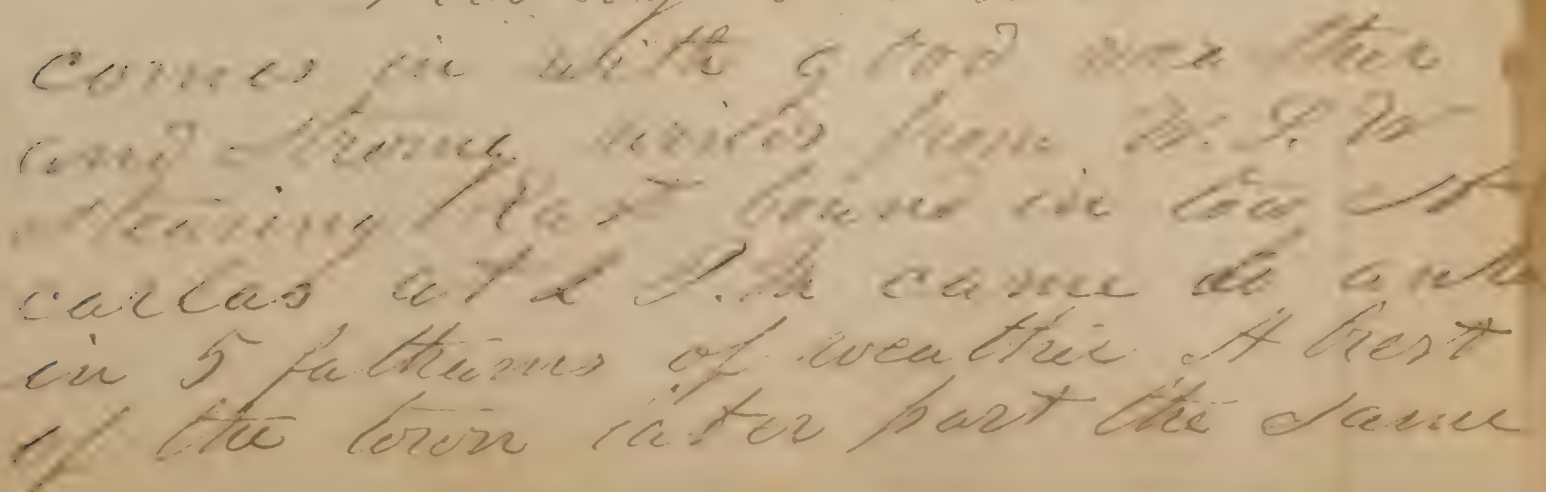 comes in with good wea ther
and Strong winds from W. S. W
Stearing East bound in to St
carlas at 2 P.M came to ank
in 5 fathems of weather A brest
of the town later part the same